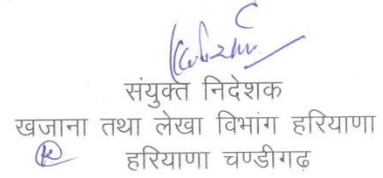 संयुक्त निदेशक
खजाना तथा लेखा विभांग हरियाणा
हरियाणा चण्डीगढ़